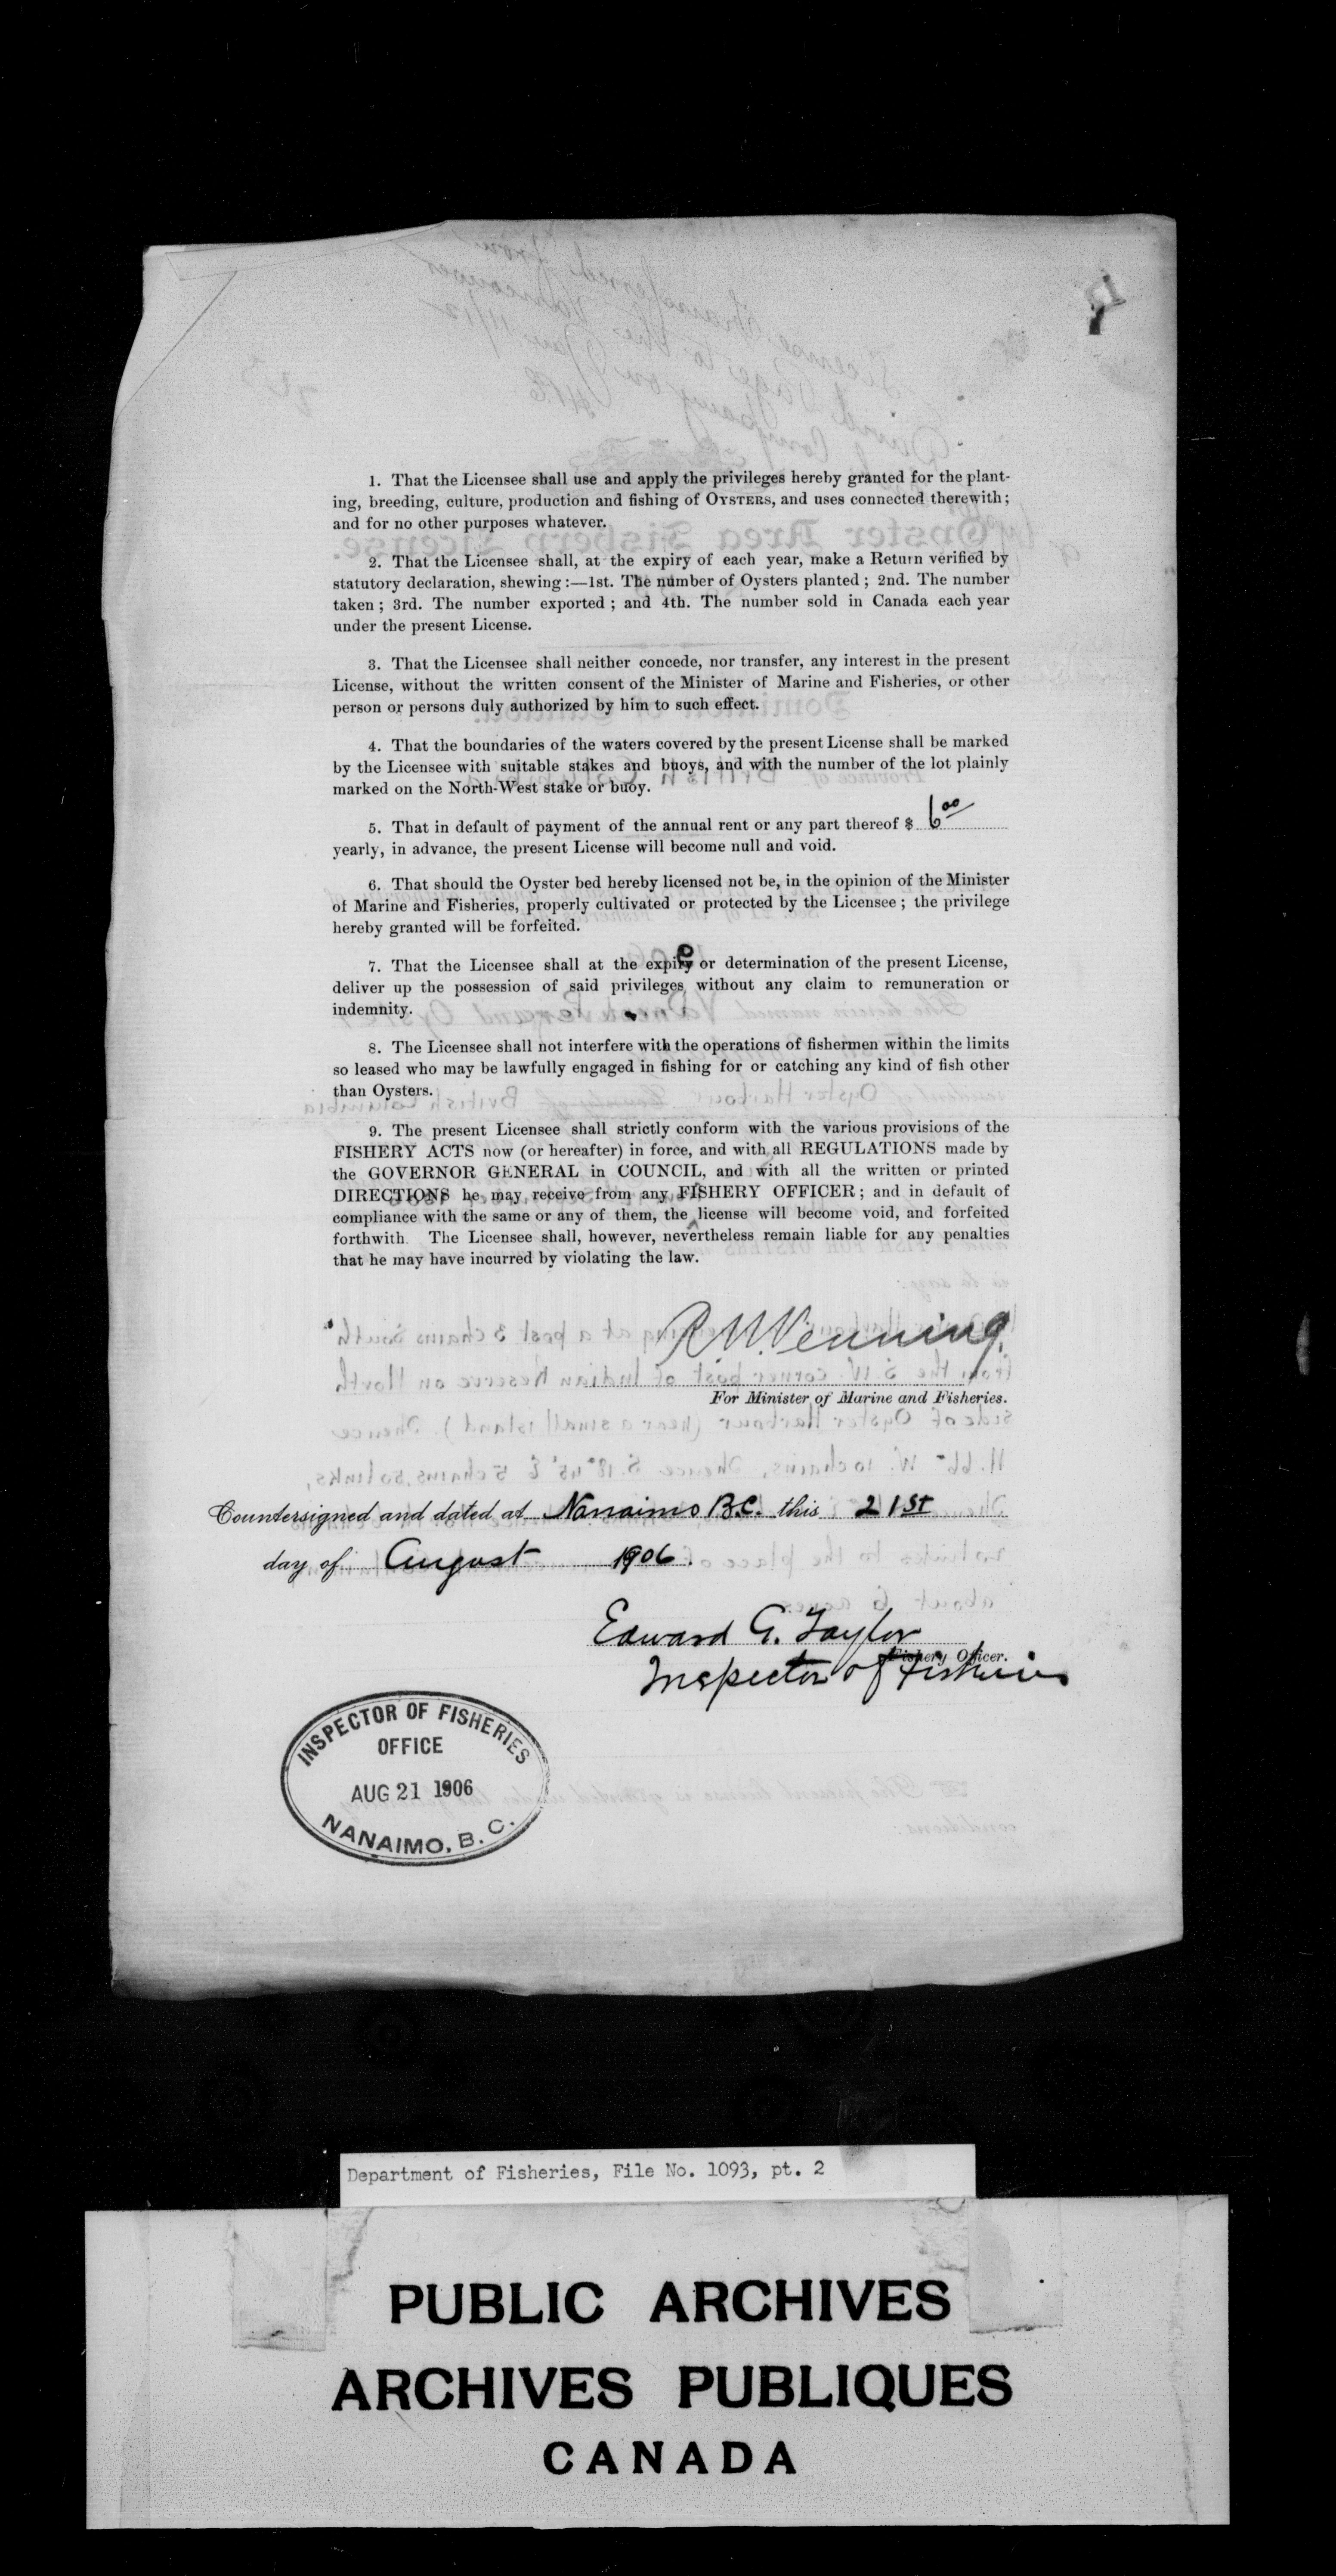 1. That the Licensee shall use and apply the privileges hereby granted for the plant-
ing, breeding, culture, production and fishing of OYSTERS, and uses connected therewith;
and for no other purposes whatever.
2. That the Licensee shall, at the expiry of each year, make a Return verified by
statutory declaration, shewing :—1st. The number of Oysters planted ; 2nd. The number
taken ; 3rd. The number exported ; and 4th. The number sold in Canada each year
under the present License.
3. That the Licensee shall neither concede, nor transfer, any interest in the present
License, without the written consent of the Minister of Marine and Fisheries, or other
person or persons duly authorized by him to such effect.
4. That the boundaries of the waters covered by the present License shall be marked
by the Licensee with suitable stakes and buoys, and with the number of the lot plainly
marked on the North-West stake or buoy.
5. That in default of payment of the annual rent or any part thereof $ 6 00
yearly, in advance, the present License will become null and void.
6. That should the Oyster bed hereby licensed not be, in the opinion of the Minister
of Marine and Fisheries, properly cultivated or protected by the Licensee ; the privilege
hereby granted will be forfeited.
7. That the Licensee shall at the expiry or determination of the present License,
deliver up the possession of said privileges without any claim to remuneration or
indemnity.
8. The Licensee shall not interfere with the operations of fishermen within the limits
so leased who may be lawfully engaged in fishing for or catching any kind of fish other
than Oysters.
9. The present Licensee shall strictly conform with the various provisions of the
FISHERY ACTS now (or hereafter) in force, and with all REGULATIONS made by
the GOVERNOR GENERAL in COUNCIL, and with all the written or printed
DIRECTIONS he may receive from any FISHERY OFFICER ; and in default of
compliance with the same or any of them, the license will become void, and forfeited
forthwith. The Licensee shall, however, nevertheless remain liable for any penalties
that he may have incurred by violating the law.
R.N. Venning.
For Minister of Marine and Fisheries.
Countersigned and dated at Nanaimo B.C. this 21st
day of August 1906.
Edward G. Taylor
Fishery Officer.
Inspector of Fisheries
INSPECTOR OF FISHERIES
OFFICE
AUG 21 1906
NANAIMO, B. C.
Department of Fisheries, File No. 1093, pt. 2
PUBLIC ARCHIVES
ARCHIVES PUBLIQUES
CANADA